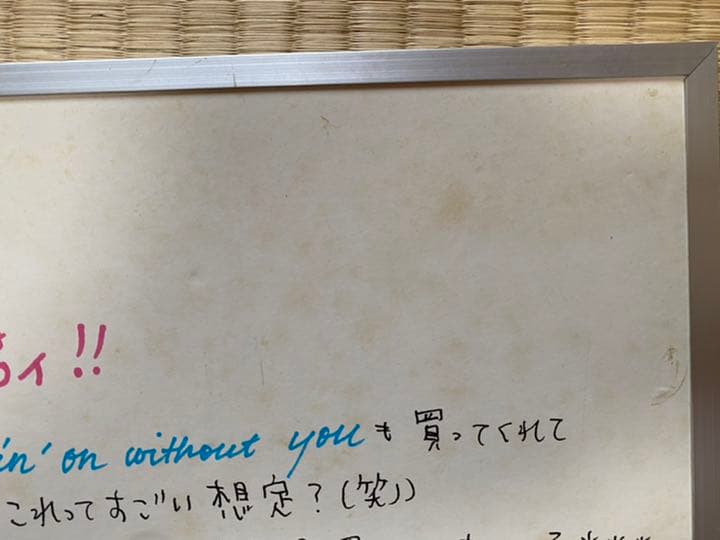 ィ!!
in' on without youも買ってくれて
これってすごい想定?(笑))